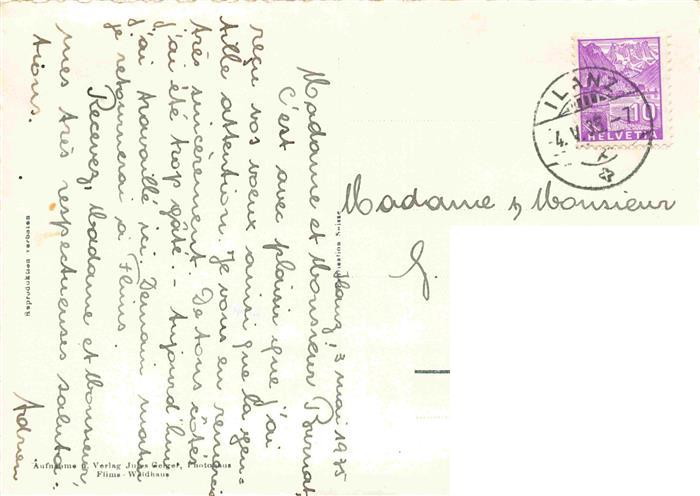 Ilanz, 3 mai 1935
Madame et Monsieur Burnat,
C'est avec plaisir que j'ai
reçu vos voeux ainsi que la gen-
tille attention. Je vous en remercie
très sincèrement. De tous côtés
j'ai été trop gâté. - Aujourd'hui
j'ai travaillé ici. Demain matin
je retournerai à Flims.
Recevez, Madame et Monsieur,
mes très respectueuses saluta-
tions.
Adrien
Reproduktion verboten
Aufnahme u. Verlag Jules Geiger, Photohaus
Flims-Waldhaus
ILANZ
4.V.35.-1
10
HELVETIA
Madame & Monsieur
G.